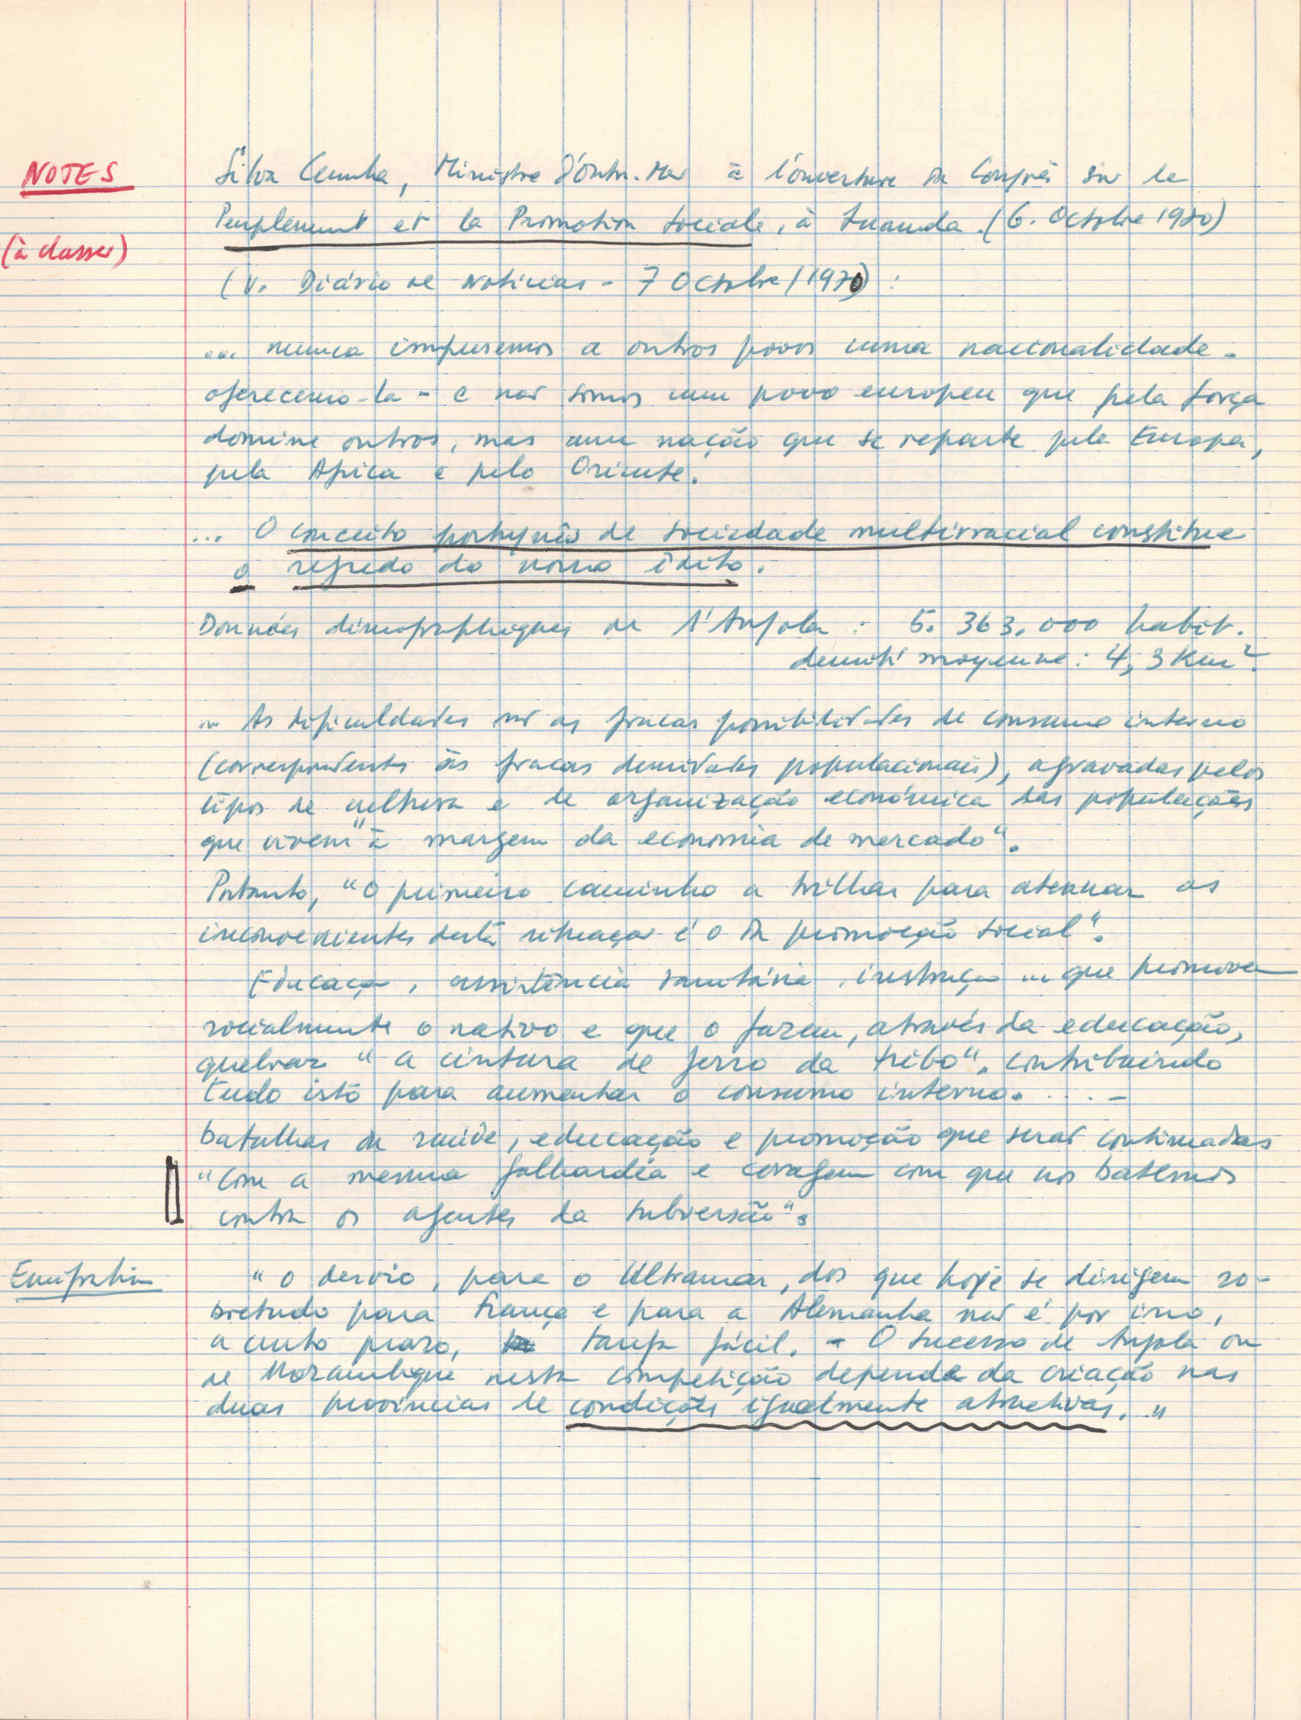 NOTES
Silva Cunha, Ministre d'Outre-Mer à l'ouverture du Congrès sur le
Peuplement et la Promotion Sociale, à Luanda. (6. Octobre 1970)
(à classer)
(V. Diário de Notícias - 7 Octobre/1970) :
... nunca impusemos a outros povos uma nacionalidade -
oferecemo-la - e não somos um povo europeu que pela força
domine outros, mas uma nação que se reparte pela Europa,
pela Africa e pelo Oriente.
... O conceito português de sociedade multirracial constitue
o segredo do nosso êxito.
Données démographiques de l'Angola : 5. 363. 000 habit.
densité moyenne : 4,3 Km²
... As dificuldades são as fracas possibilidades de consumo interno
(correspondentes às fracas densidades populacionais), agravadas pelos
tipos de cultura e de organização económica das populações
que vivem "à margem da economia de mercado".
Portanto, "o primeiro caminho a trilhar para atenuar os
inconvenientes desta situação é o da promoção social".
Educação, assistência sanitária, instrução ... que promova
socialmente o nativo e que o fazem, através da educação,
quebrar "a cintura de ferro da tribo", contribuindo
tudo isto para aumentar o consumo interno. . . . -
batalhas da saúde, educação e promoção que serão continuadas
"com a mesma galhardia e coragem com que nos batemos
contra os agentes da subversão".
Emigration
"o desvio, para o Ultramar, dos que hoje se dirigem so-
bretudo para França e para a Alemanha não é por isso,
a curto prazo, tarefa fácil. - O sucesso de Angola ou
de Mozambique nesta competição depende da criação nas
duas províncias de condições igualmente atractivas. "